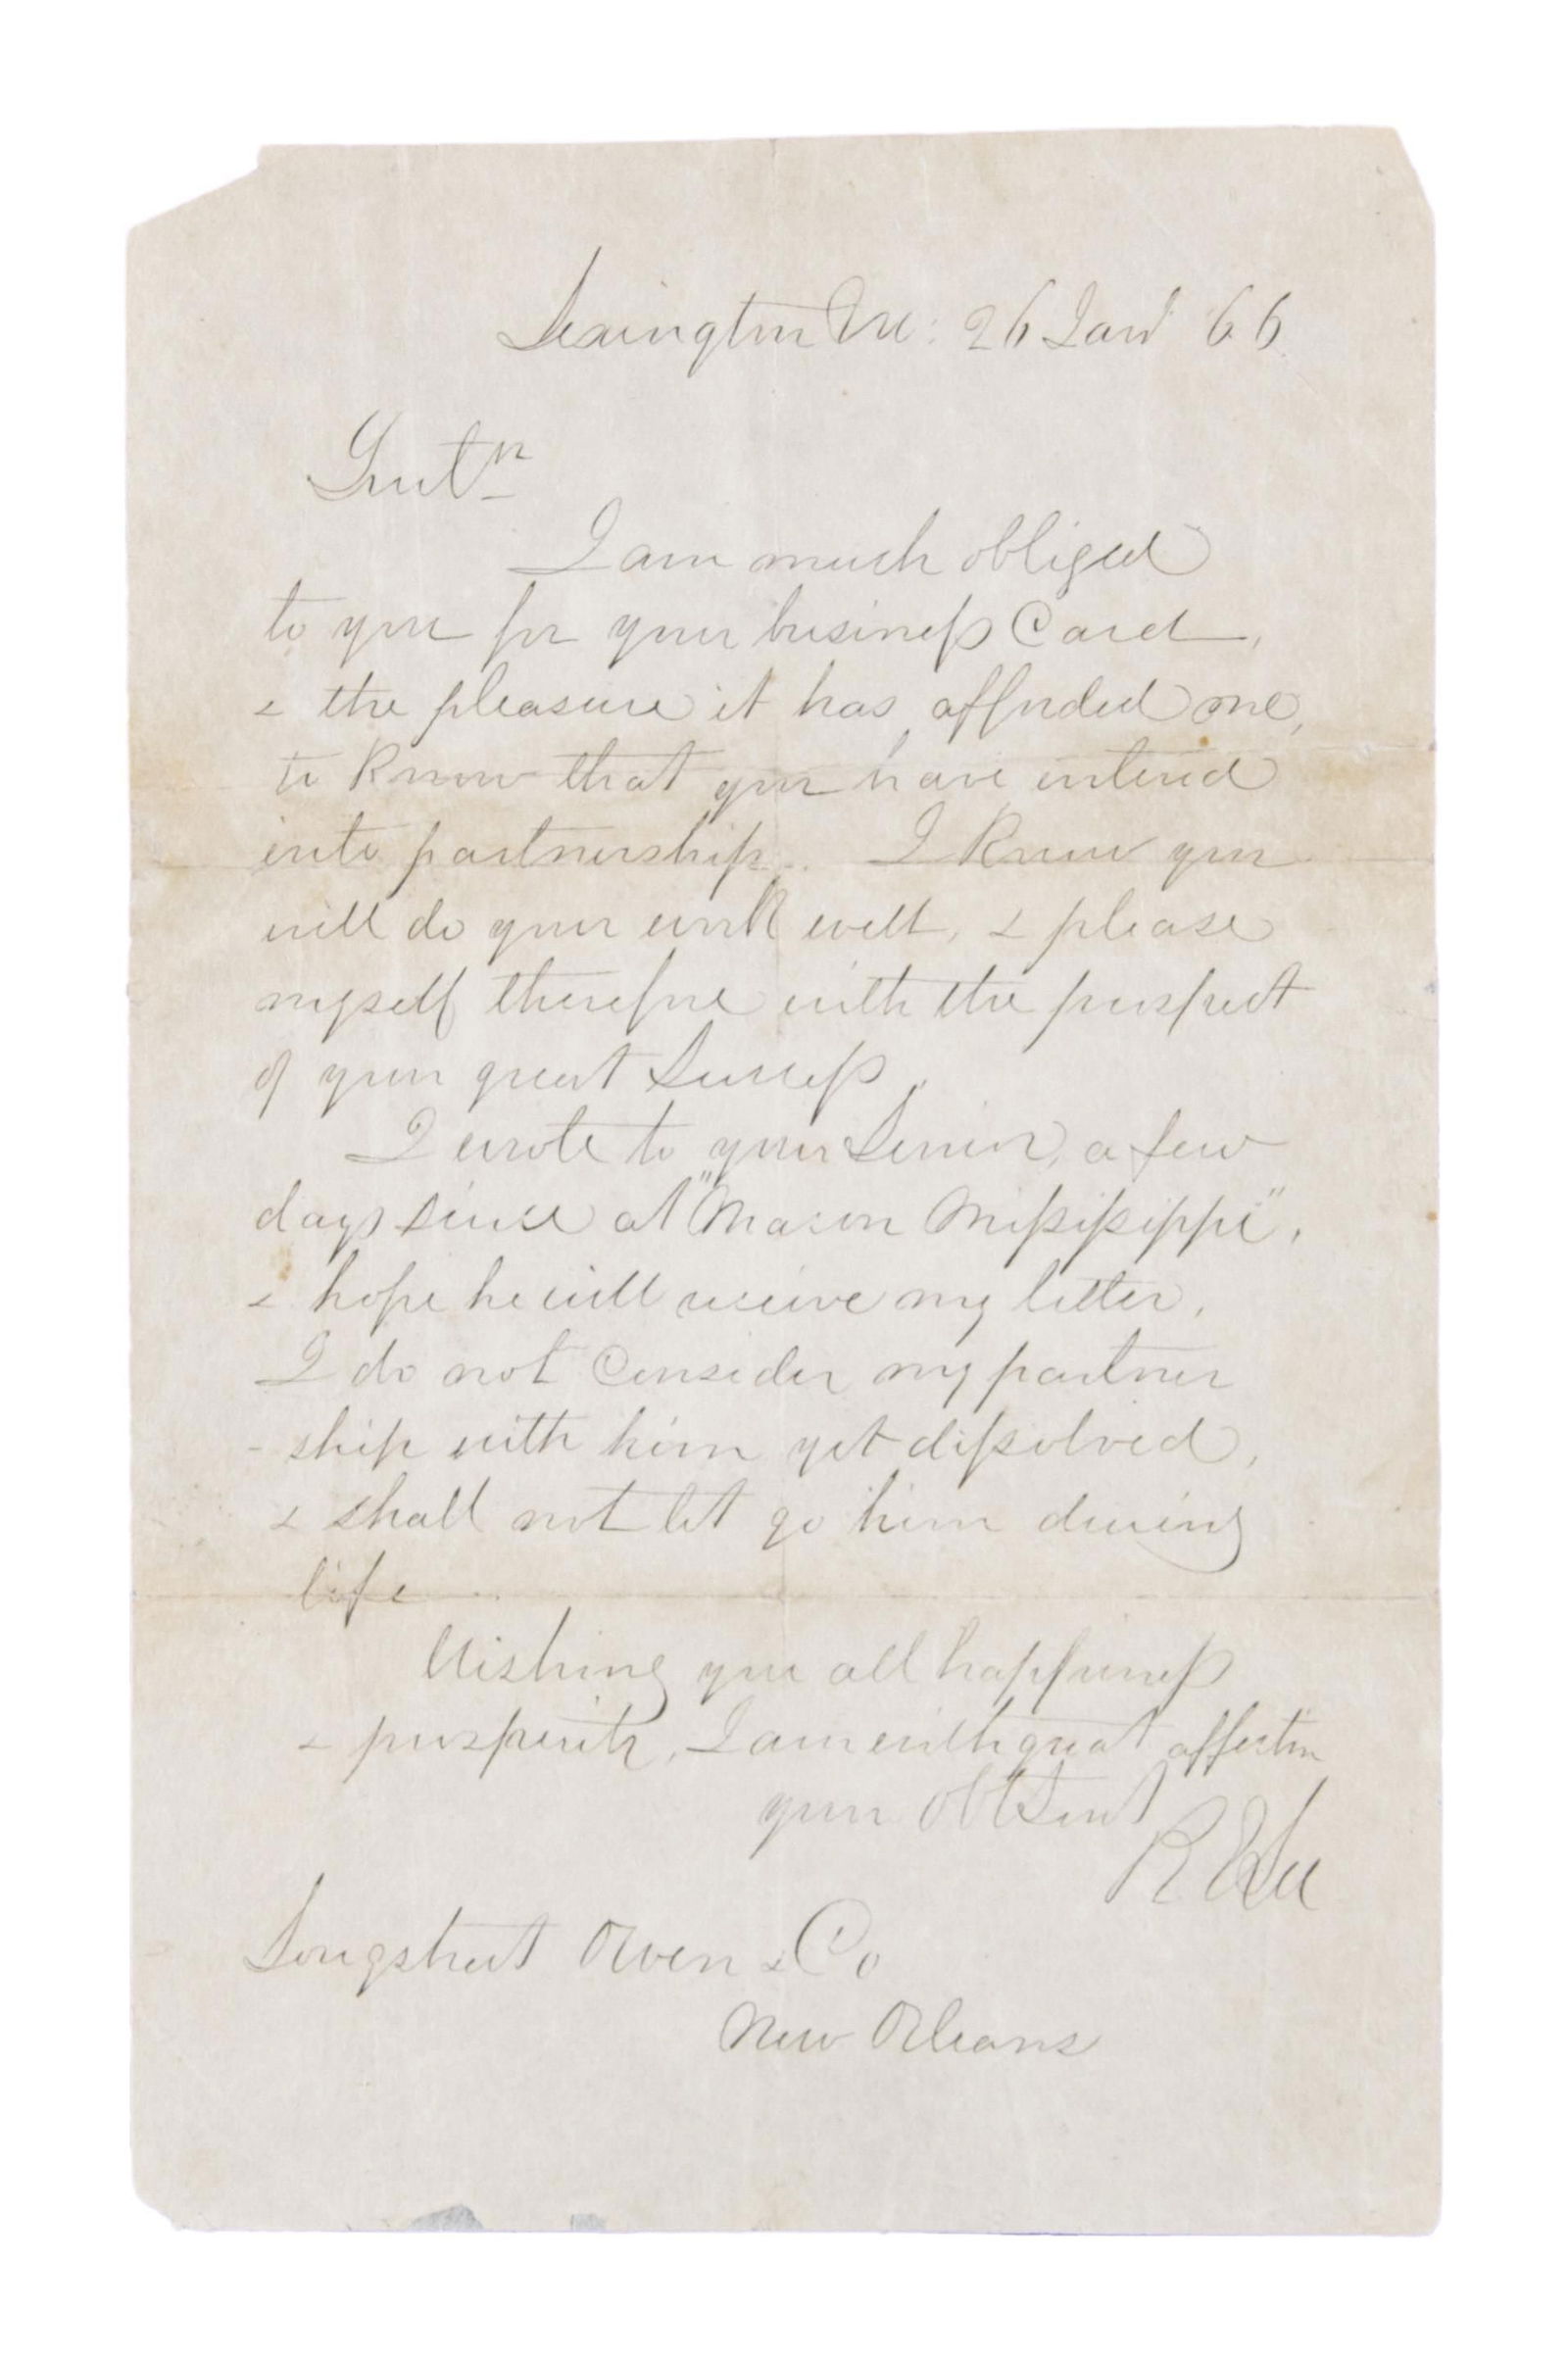 Lexington Va: 26 Jany 66
Gentn
I am much obliged
to you for your business Card,
& the pleasure it has afforded me,
to know that you have entered
into partnership. I know you
will do your work well, & please
myself therefore with the prospect
of your great Success.
I wrote to your Senior, a few
days since at "Macon Mississippi",
& hope he will receive my letter.
I do not Consider my partner
- ship with him yet dissolved,
& shall not let go him during
life.
Wishing you all happiness
& prosperity, I am with great affection
your obt Servt
R E Lee
Longstreet Owen & Co
New Orleans